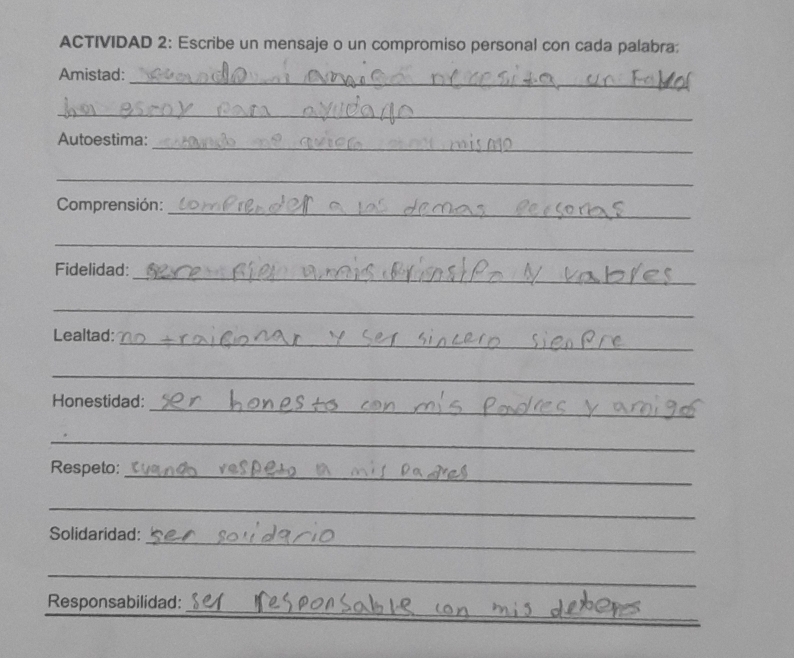 ACTIVIDAD 2: Escribe un mensaje o un compromiso personal con cada palabra:
Amistad: cuando mi amigo necesita un Favor
ha estoy para ayudarlo
Autoestima: cuando me quiero a mi mismo
Comprensión: comprender a las demas personas
Fidelidad: sere fiel a mis y valores
Lealtad: no traicionar y ser sincero sienpre
Honestidad: ser honesto con mis padres y amigos
Respeto: cuando respeto a mis padres
Solidaridad: ser solidario
Responsabilidad: ser responsable con mis deberes